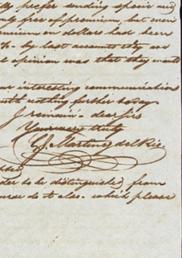 prefer sending specie and
ly free of premium, but even
premium on dollars had been
%. by last accounts they are
opinion was that they would
interesting communication
with nothing further to day
I remain dear sirs
Yours very truly
J. Martinez del Rio
to be distinguished from
do it also. which please